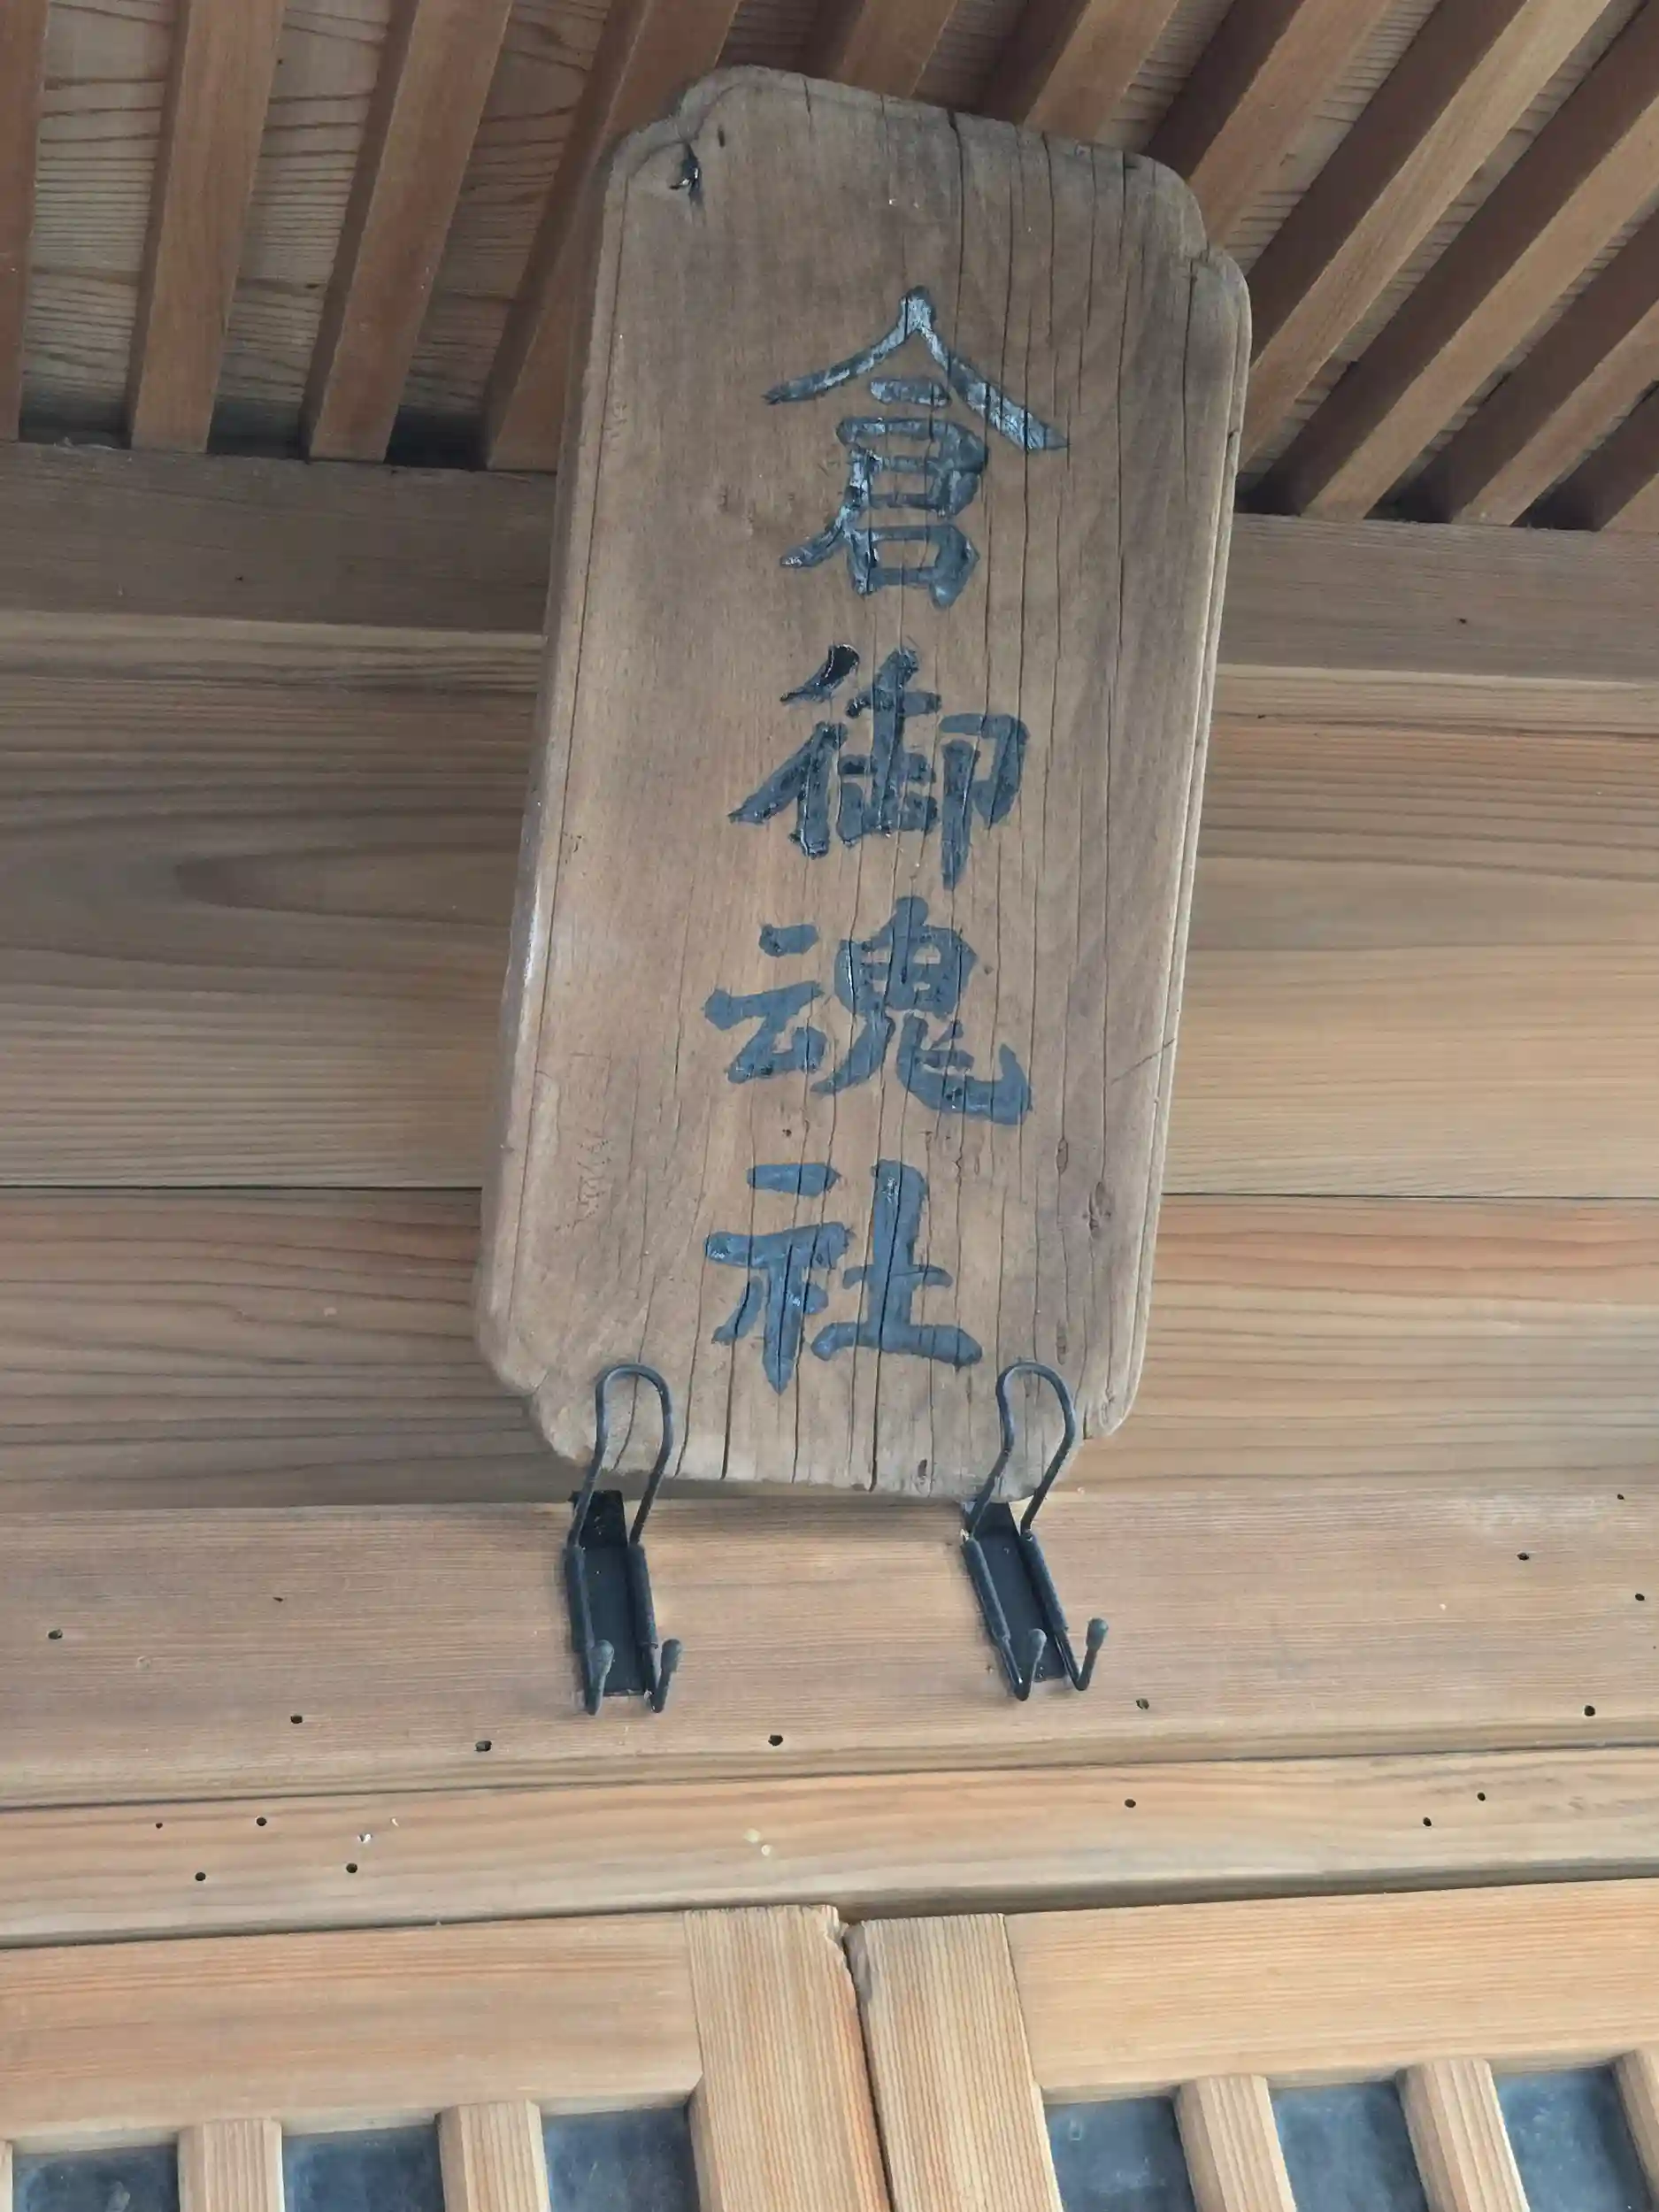 倉御魂社